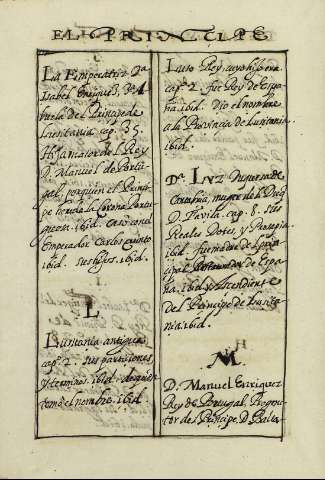 EL PRINCIPE
La Emperatriz Dª
Isabel Enriquez, Ab
buela del Principe de
Lusitania cap. 35.
Hija maior del Rey
D. Manuel de Portu
gal, por quien el Princi
pe hereda la Corona Portu
guesa. ibid. caso con el
Emperador Carlos quinto
ibid. sus hijos. ibid.
L
Lusitania antigua
cap. 2. sus particiones
y terminos. ibid. de quien
tomo el nombre. ibid.
Luso Rey, cuyo hijo era
cap. 2. fue Rey de Espa
ña. ibid. Dio el nombre
a la Provincia de Lusitania.
ibid.
Dª. Luz
muger del Duq
D. Favila. cap. 8. sus
Reales Dotes, y
ibid. fue madre de
Restaurador de Espa
ña. ibid. y Ascendiente
del Principe de Lusita
nia. ibid.
M
D. Manuel Enriquez
Rey de Portugal, Progeni
tor del Principe D. Balta